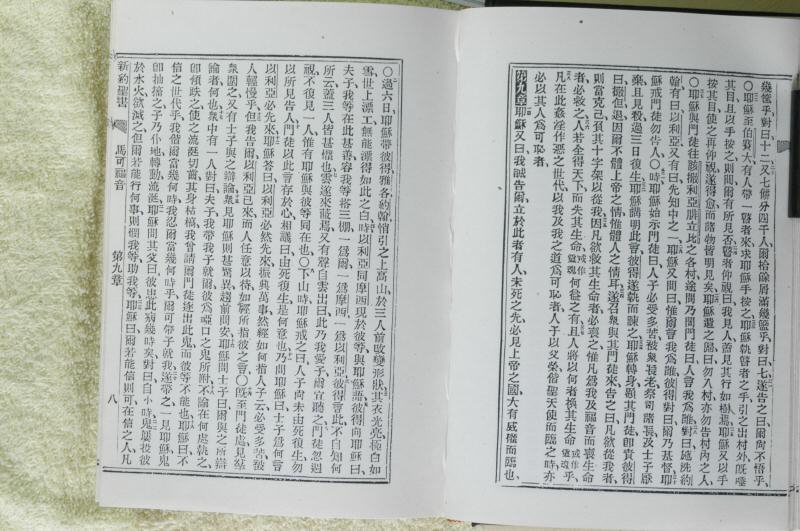 幾筐乎、對曰、十二、又七餅分四千人、爾拾餘屑滿幾籃乎、對曰、七、遂告之曰、爾尙不悟乎、
○耶穌至伯賽大、有人帶一瞽者來、求耶穌手按之、耶穌執瞽者之手、引之出村外、旣唾
其目、且以手按之、則問爾有所見否、瞽者仰視曰、我見人、蓋見其行如樹焉、耶穌又以手
按其目、使之再仰視、遂得愈而諸物皆明見矣、耶穌遣之歸曰、勿入村、亦勿告村內之人、
○耶穌與門徒往該撒利亞腓立比之各村、途間乃問門徒曰、人言我爲誰、對曰、施洗約
翰、有曰以利亞、又有曰、先知中之一、耶穌又問曰、惟爾言我爲誰、彼得對曰、爾乃基督、耶
穌戒門徒勿告人、○時耶穌始示門徒曰、人子必受多苦、被衆長老祭司諸長及士子厭
棄、且見殺、過三日復生、耶穌講明此言、彼得遂執而諫之、耶穌轉身顧其門徒、卽責彼得
曰、撒但退、因爾不體上帝之情、惟體人之情耳、遂召衆與其門徒來、告之曰、凡欲從我者、
則當克己、負其十字架以從我、因凡欲救其生命者、必喪之、惟凡爲我及福音而喪生命
者、必救之、人若全得天下而失其生命、何益之有、且人將以何者換其生命乎、
凡在此姦淫作惡之世代、以我及我之道爲可恥者、人子於父榮偕聖天使而臨之時、亦
必以其人爲可恥者、
第九章 耶穌又曰、我誠告爾、立於此者、有人未死之先、必見上帝之國大有威權而臨也、
○過六日、耶穌帶彼得、雅各、約翰、悄引之上高山、於三人前改變形狀、其衣光亮極白如
雪、世上漂工無能漂得如此之白、時以利亞同摩西現於彼等、與耶穌語、彼得向耶穌曰、
夫子、我等在此甚善、容我等搭三棚、一爲爾、一爲摩西、一爲以利亞、彼得言此、不自知何
所云、蓋三人皆甚懼也、雲遂來蔽焉、又有聲自雲出曰、此乃我愛子、爾宜聽之、門徒忽週
視、不復見一人、惟有耶穌與彼等同在也、○下山時、耶穌戒之曰、人子尙未由死復生、勿
以所見告人、門徒以此言存於心、相議曰、由死復生是何意也、乃問耶穌曰、士子爲何言
以利亞必先來、耶穌答曰、以利亞必然先來、振興萬事、然經如何指人子云、必受多苦、被
人輕慢乎、但我告爾、以利亞已來、而人任意以待、如經所指彼之言、○旣至門徒處、見衆
衆圍之、又有士子與之辯論、衆見耶穌、則甚驚異、趨前問安、耶穌問士子曰、爾與之所辯
論者何也、衆中有一人對曰、夫子、我帶我子就爾、彼爲啞口之鬼所附、不論在何處執之、
卽傾跌之、使之流涎、切齒、其身枯槁、我曾請爾門徒逐出此鬼、而彼等不能也、耶穌曰、不
信之世代乎、我偕爾當幾何時、我忍爾當幾何時乎、爾可帶子就我、遂帶之、一見耶穌、鬼
卽抽搐之、子乃仆地、轉動流涎、耶穌問其父曰、彼患此病幾時矣、對曰、自小時、鬼屢投彼
於水火、欲滅之、但爾若能行何事、則憫我等、助我等、耶穌曰、爾若能信、則可、在信之人、凡
新約聖書　馬可福音　第九章　八